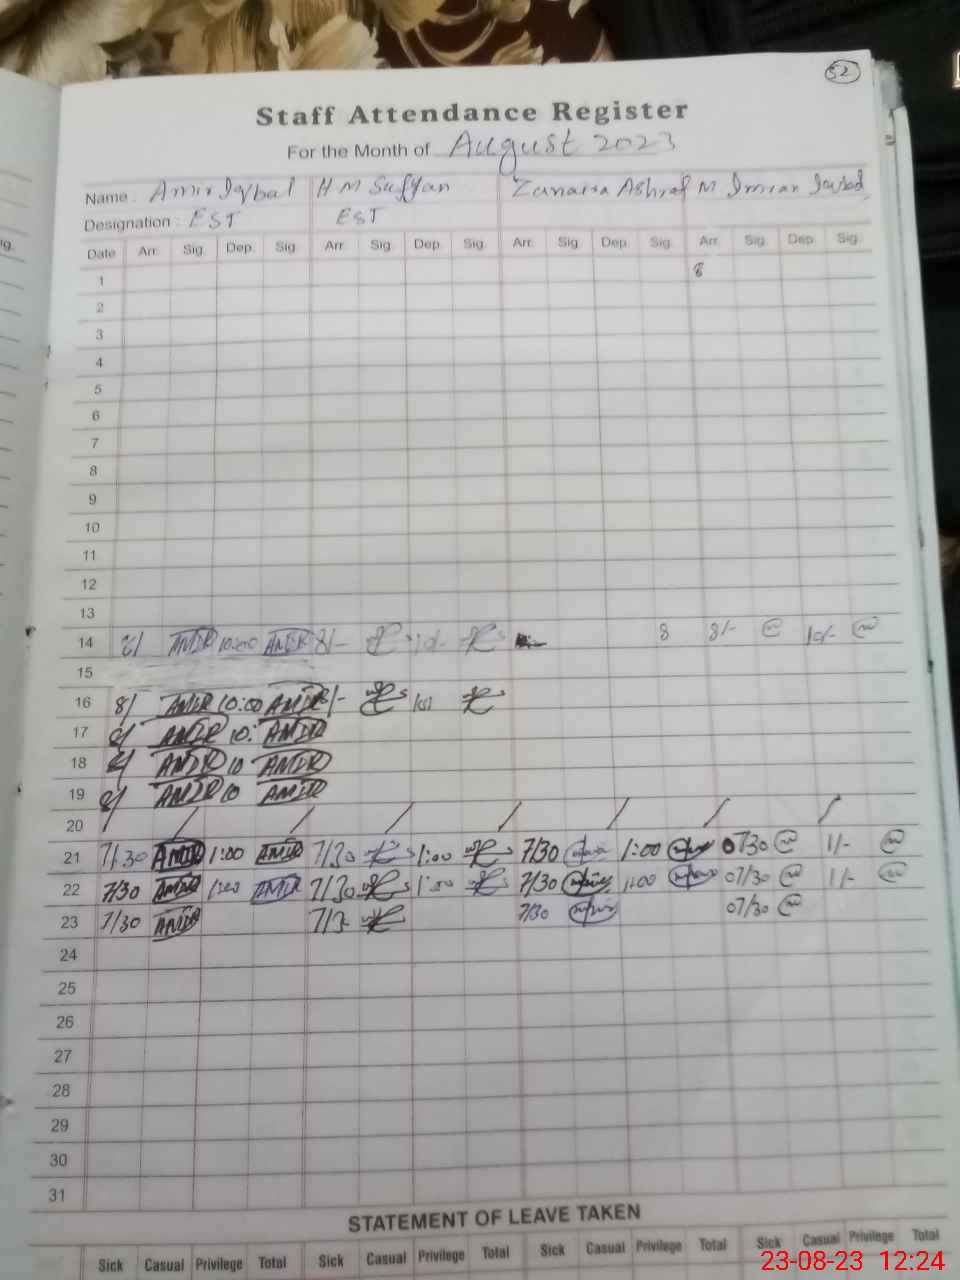 52
Staff Attendance Register
For the Month of August 2023
Name : Amir Iqbal H M Sufyan Zunaira Ashraf M Imran
Designation : EST EST
Date Arr. Sig. Dep. Sig. Arr. Sig. Dep. Sig. Arr. Sig Dep. Sig. Arr. Sig. Dep. Sig.
1 8
2
3
4
5
6
7
8
9
10
11
12
13
14 8/ AMIR 10:00 AMIR 8/- 10/- 8 8/- 10/-
15
16 8/ AMIR 10:00 AMIR 8/-
17 8/ AMIR 10: AMIR
18 8/ AMIR 10 AMIR
19 8/ AMIR 10 AMIR
20 / / / / / / / /
21 7/30 AMIR 1:00 AMIR 7/30 1:00 7/30 1:00 0730 1/-
22 7/30 AMIR 1:00 AMIR 7/30 1:00 7/30 1:00 07/30 1/-
23 7/30 AMIR 7/3- 7/30 07/30
24
25
26
27
28
29
30
31
STATEMENT OF LEAVE TAKEN
Sick Casual Privilege Total Sick Casual Privilege Total Sick Casual Privilege Total Sick Casual Privilege Total
23-08-23 12:24